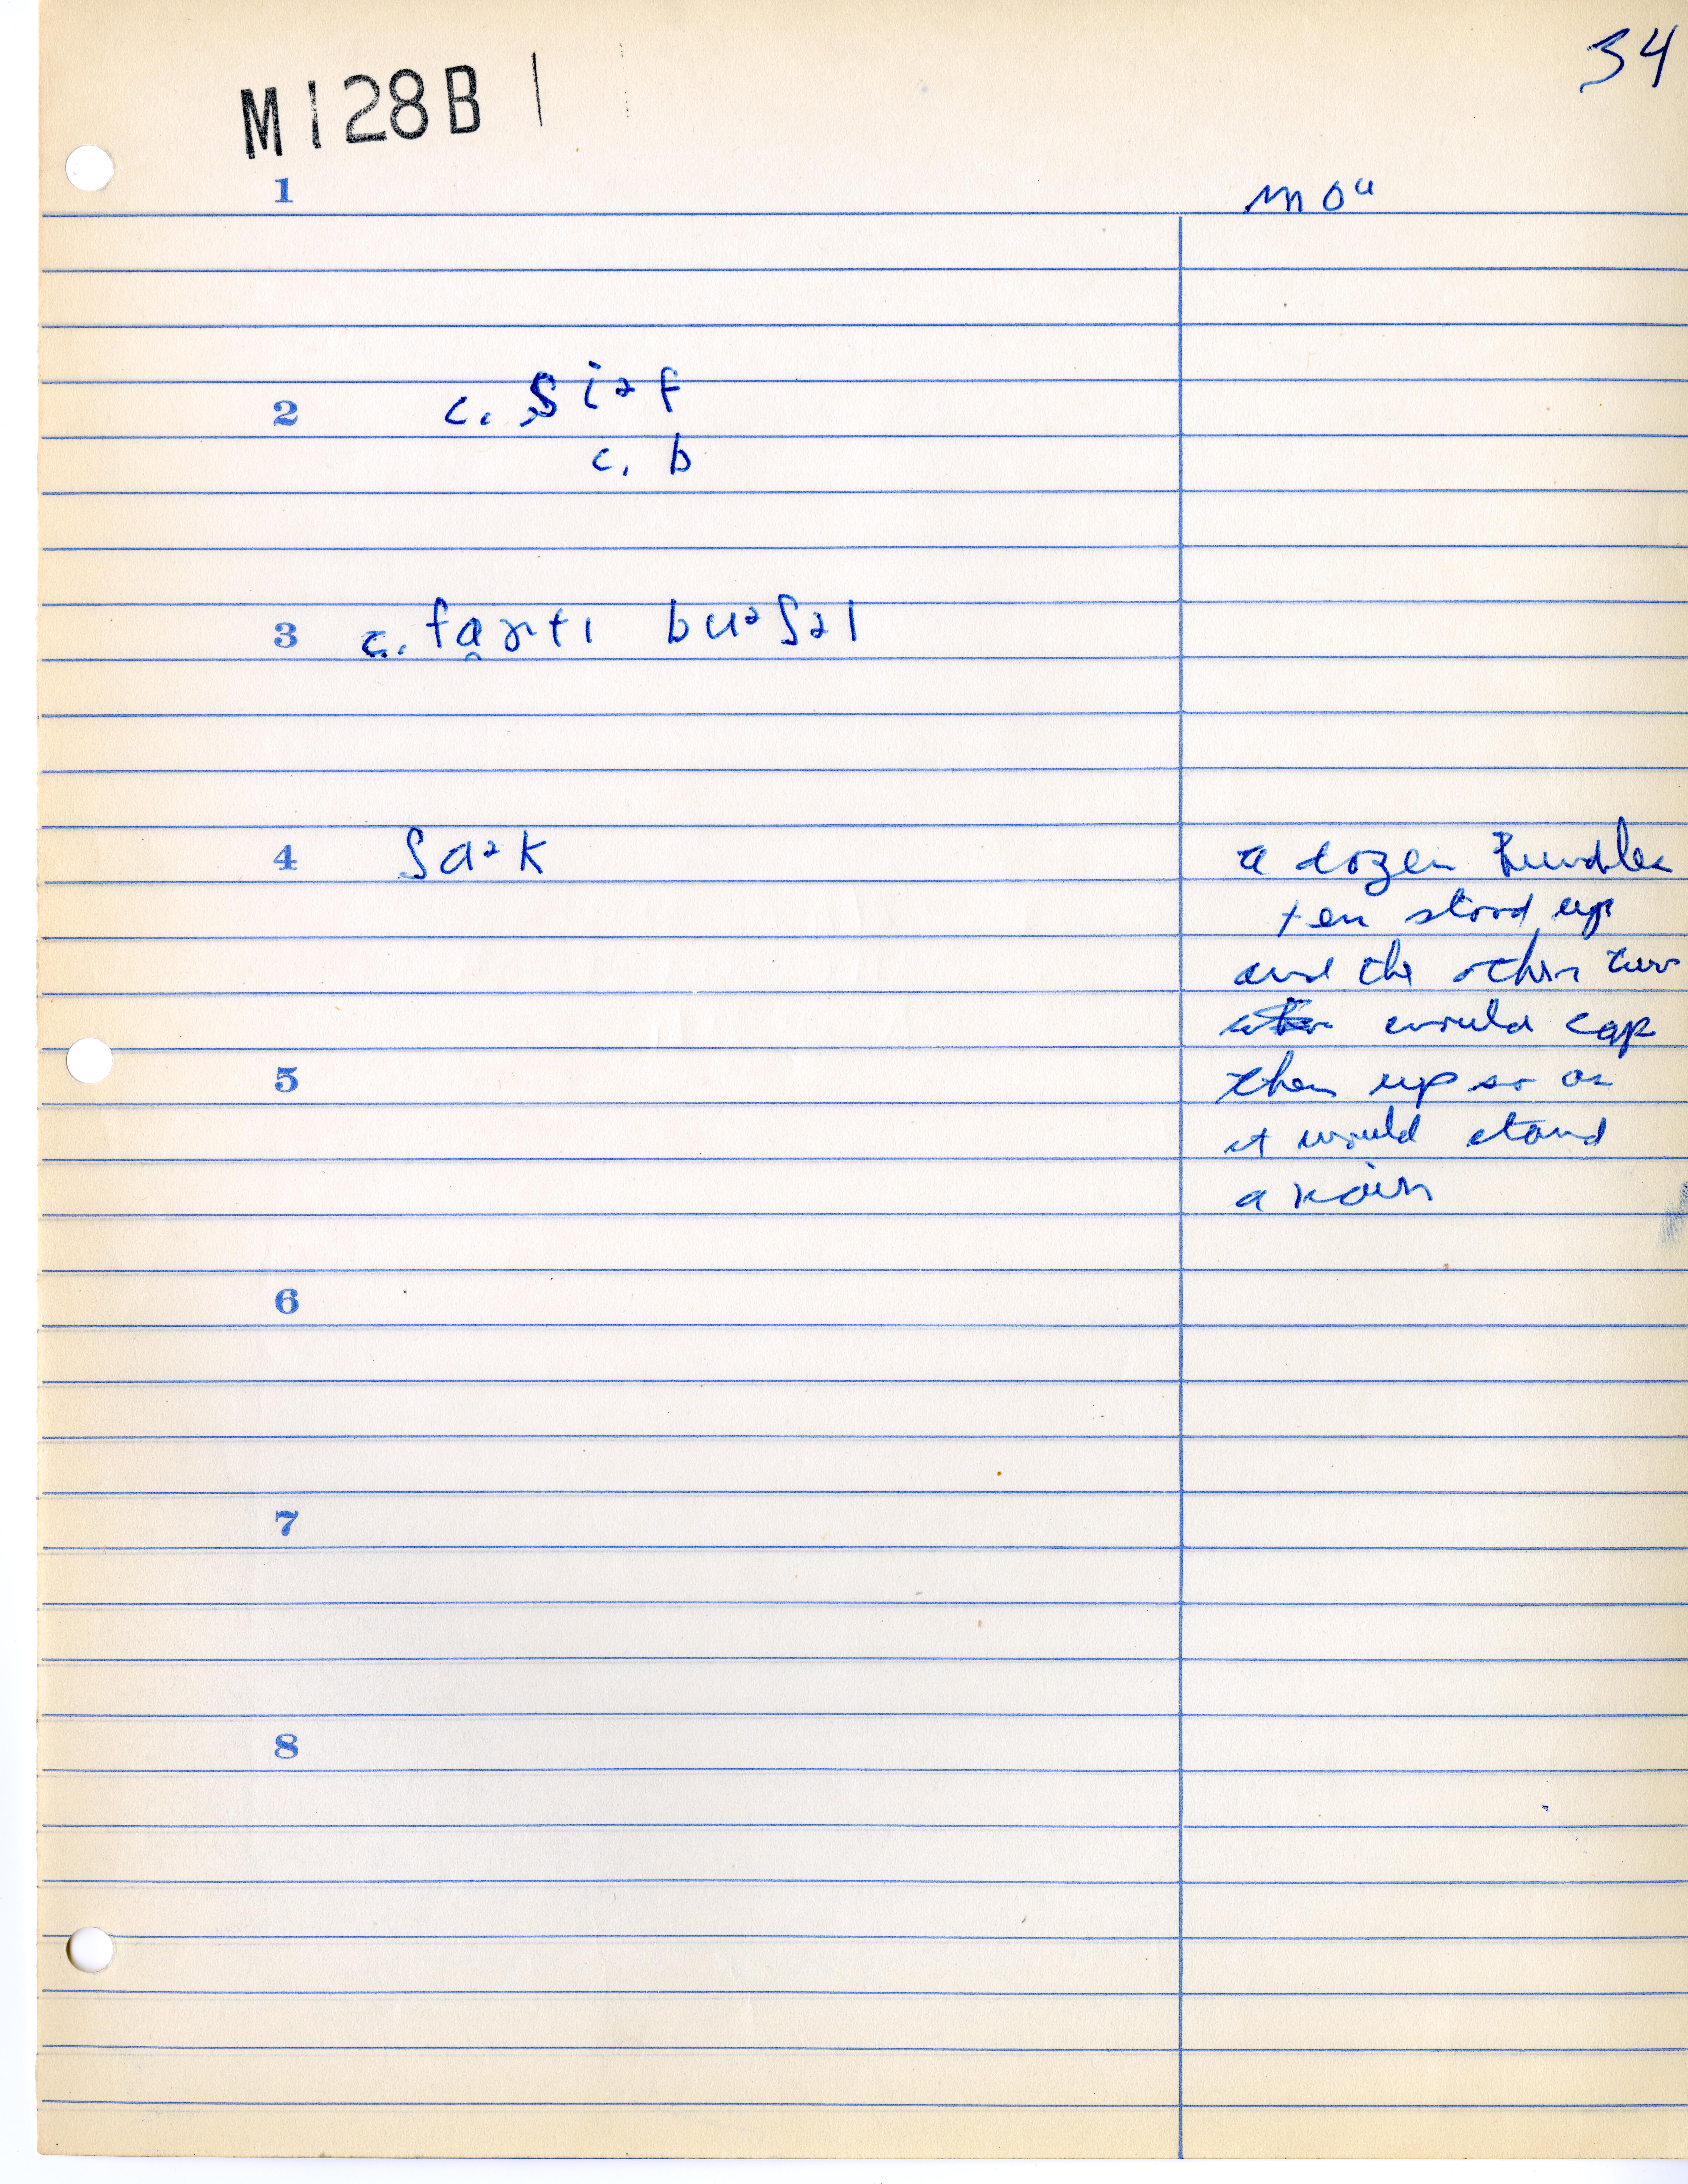 34
M128B |
1 mou
2 c. ʃiəf
c. b
3 c. fa̯ɤti buəʃəl
4 ʃaək a dozen bundles
ten stood up
and the other two
would cap
them up so as
it would stand
5
a rain
6
7
8